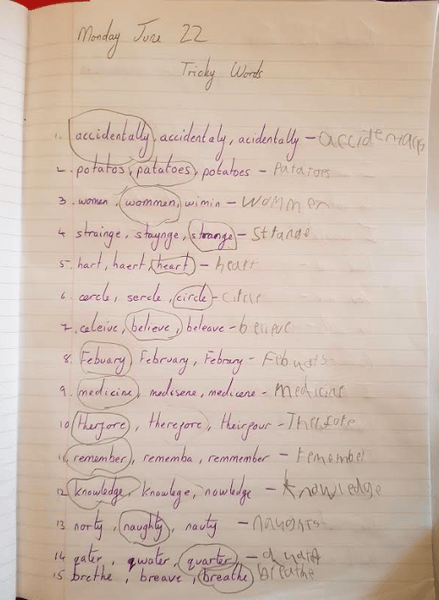 Monday June 22
Tricky Words
1. accidentally, accidentaly, acidentally -
2. potatos, patatoes, potatoes - Patatoes
3. women, wommen, wimin - Wommen
4 strainge, staynge, strange - Strange
5. hart, haert, heart - heart
6. cercle, sercle, circle - Circle
7. celeive, believe, beleave - believe
8. Febuary, February, Febrary -
9. medicine, medisene, medicene - Medicine
10 therfore, therefore, theirfour -
11. remember, rememba, remmember - remember
12 knowledge, knowlege, nowledge - knowledge
13 norty, naughty, nauty -
14 qater, qwater, quarter -
15 brethe, breave, breathe - breathe